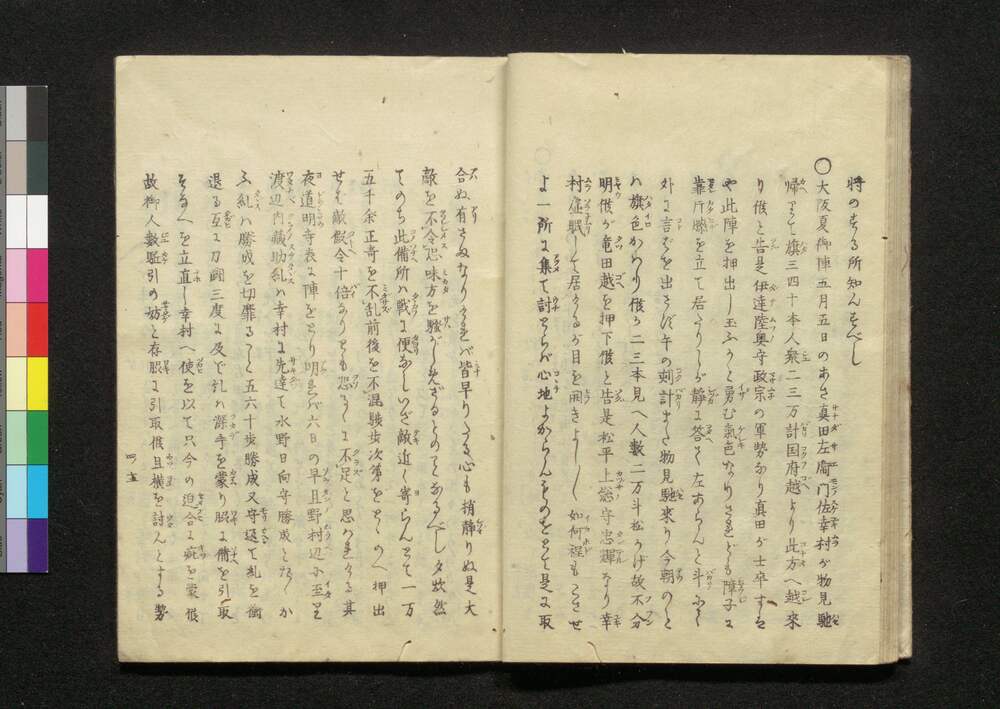 将のする所知んぬべし
〇大阪夏御陣五月五日のあさ真田左衛門佐幸村が物見馳
帰りて旗三四十本人衆二三万計国府越より此方へ越来
り候と告是伊達陸奥守政宗の軍勢なり真田が士卒すは
や此陣を押出し玉ふかと勇む気色なりされども障子に
靠片膝を立て居たりしが静に答て左あらんと斗にて
外に言葉を出さず午の刻計また物見馳来り今朝のと
ハ旗色かわり候か二三本見へ人数二万斗松かげ故不分
明候が竜田越を押下候と告是松平上総守忠輝なり幸
村虚眠して居たるが目を開きよし〱如何程もこさせ
よ一所に集て討とらば心地よからんものをとて是に取
合ぬ有さまなりければ皆早りたる心も稍静りぬ是大
敵を不令恐味方を騒がしめざるとのことなるべし夕炊然
てのち此備所ハ戦に便なしいざ敵近く寄らんとて一万
五千余正奇を不乱前後を不混駿歩次第をとゝのへ押出
せば敵仮令十倍なりとも恐るゝに不足と思ハれける其
夜道明寺表に陣をとり明れば六日の早旦野村辺に至里
渡辺内蔵助乱ハ幸村に先達て水野日向守勝成と
乱ハ勝成を切靡る事五六十歩勝成又守返て乱を
退る互に刀闘三度に及で乱ハ深手を蒙り服に備を引取
を立直し幸村へ使を以て只今の迫合に疵を蒙候
故御人数駈引の妨と存服に引取候且横を討んとする勢
四ノ五